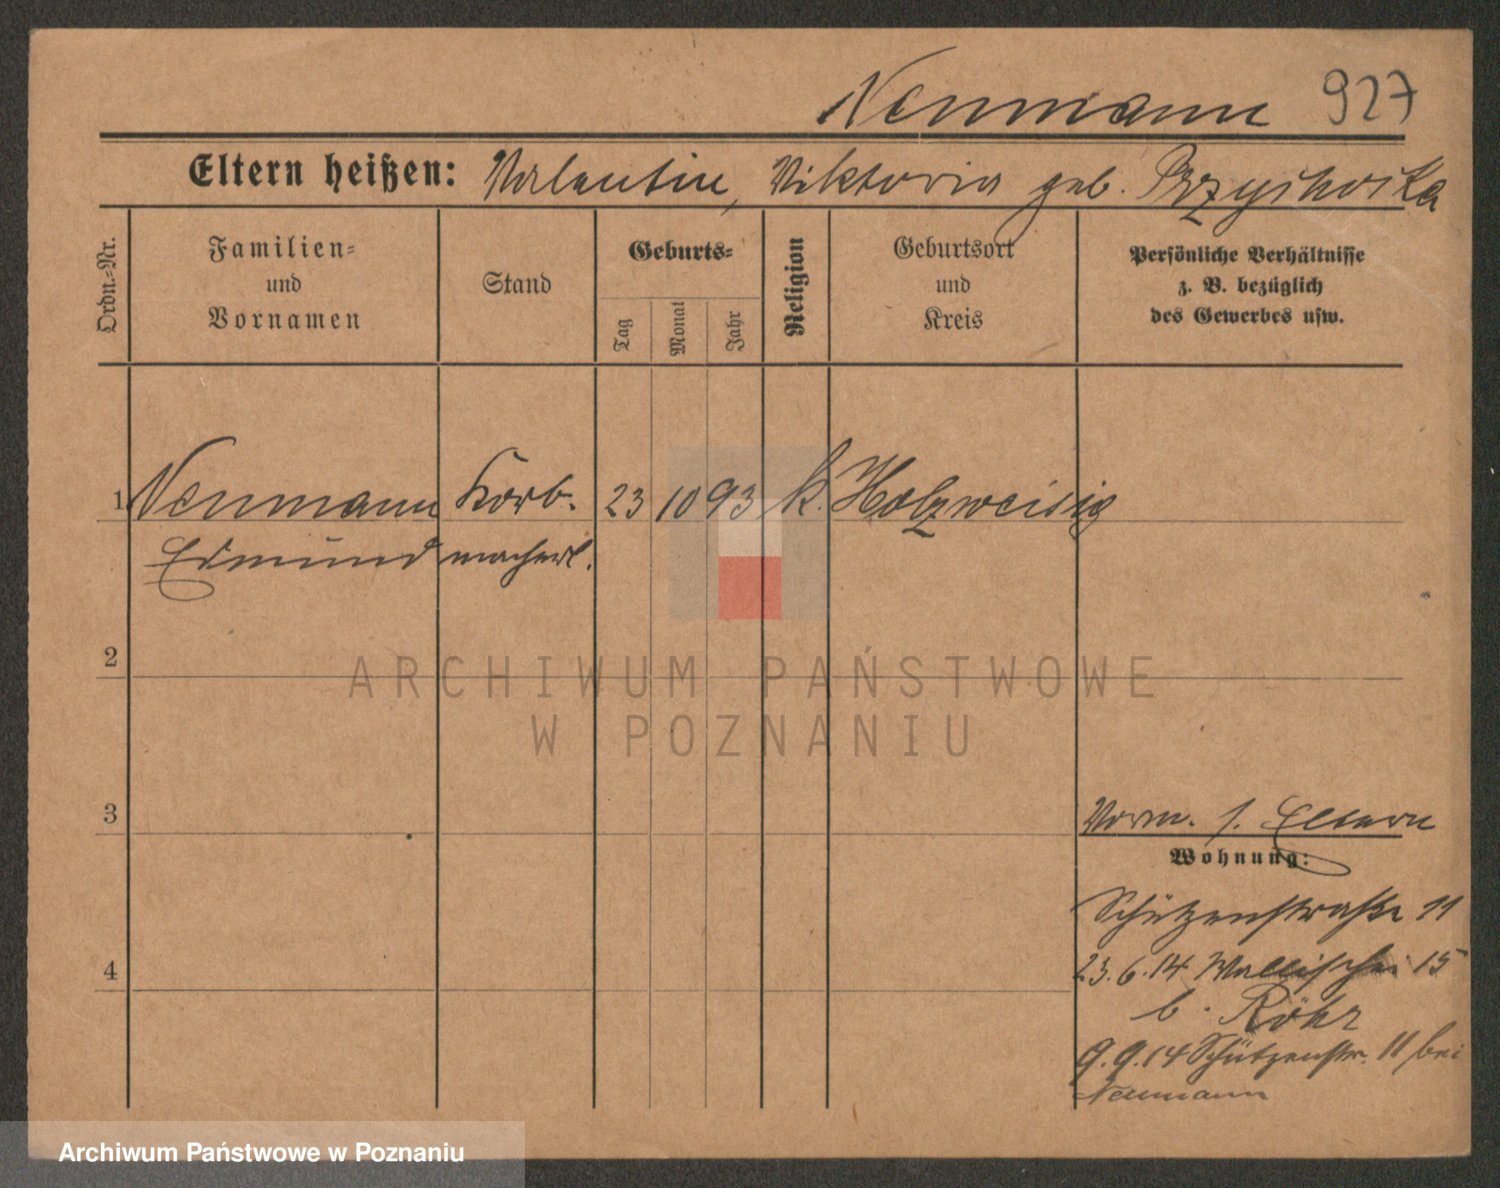 Neumann 927
Eltern heißen: Valentin, Viktoria geb.
Ordn.=Nr.
Familien=
und
Vornamen
Stand
Geburts=
Tag
Monat
Jahr
Religion
Geburtsort
und
Kreis
Persönliche Verhältnisse
z. B. bezüglich
des Gewerbes usw.
1 Neumann Korb- 23 10 93 k. Holzweissig
Edmund macherl.
2
ARCHIWUM PAŃSTWOWE
W POZNANIU
3
Vorm. s. Eltern
Wohnung:
Schützenstraße 11
4
23.6.14 Wallischei 15
b. Röhr
9.9.14 Schützenstr. 11 bei
Neumann
Archiwum Państwowe w Poznaniu